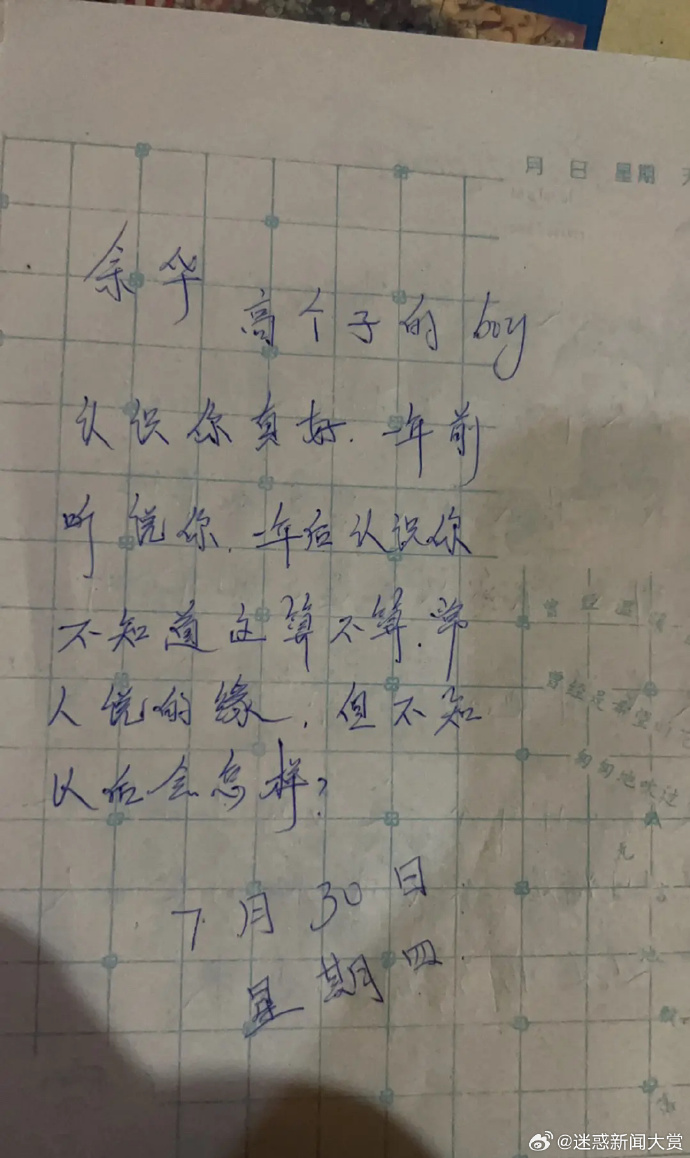 月 日 星期 天
余华
高个子的boy
认识你真好.一年前
听说你.一年后认识你
不知道这算不算.常
人说的缘.但不知
以后会怎样?
7月30日
星期四
曾经
希望
匆匆地吹过
@迷惑新闻大赏